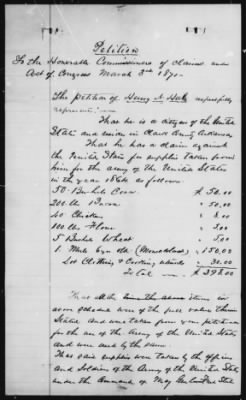 Petition
To the Honorable Commissioners of Claims under
Act of Congress March 3rd 1871.
The petition of Henry A. respectfully
represents:
That he is a citizen of the United
States and resides in Clark County Arkansas
That he has a claim against
the United States for supplies taken from
him for the army of the United States
in the year 1864 as follows:
50 Bushels Corn $ 50.00
200 lbs Bacon " 50.00
40 Chickens " 8.00
100 lbs Flour " 5.00
5 Bushels Wheat " 5.00
1 Mule 6 yrs old " 150.00
Lot Clothing & Cooking utensils " 30.00
Total $ 298.00
That all the above items in
above schedule were of the full value therein
Stated and were taken from your petitioner
for the use of the Army of the United States
and were used by the same.
That said supplies were taken by the officers
and Soldiers of the Army of the United States
under the Command of Maj General